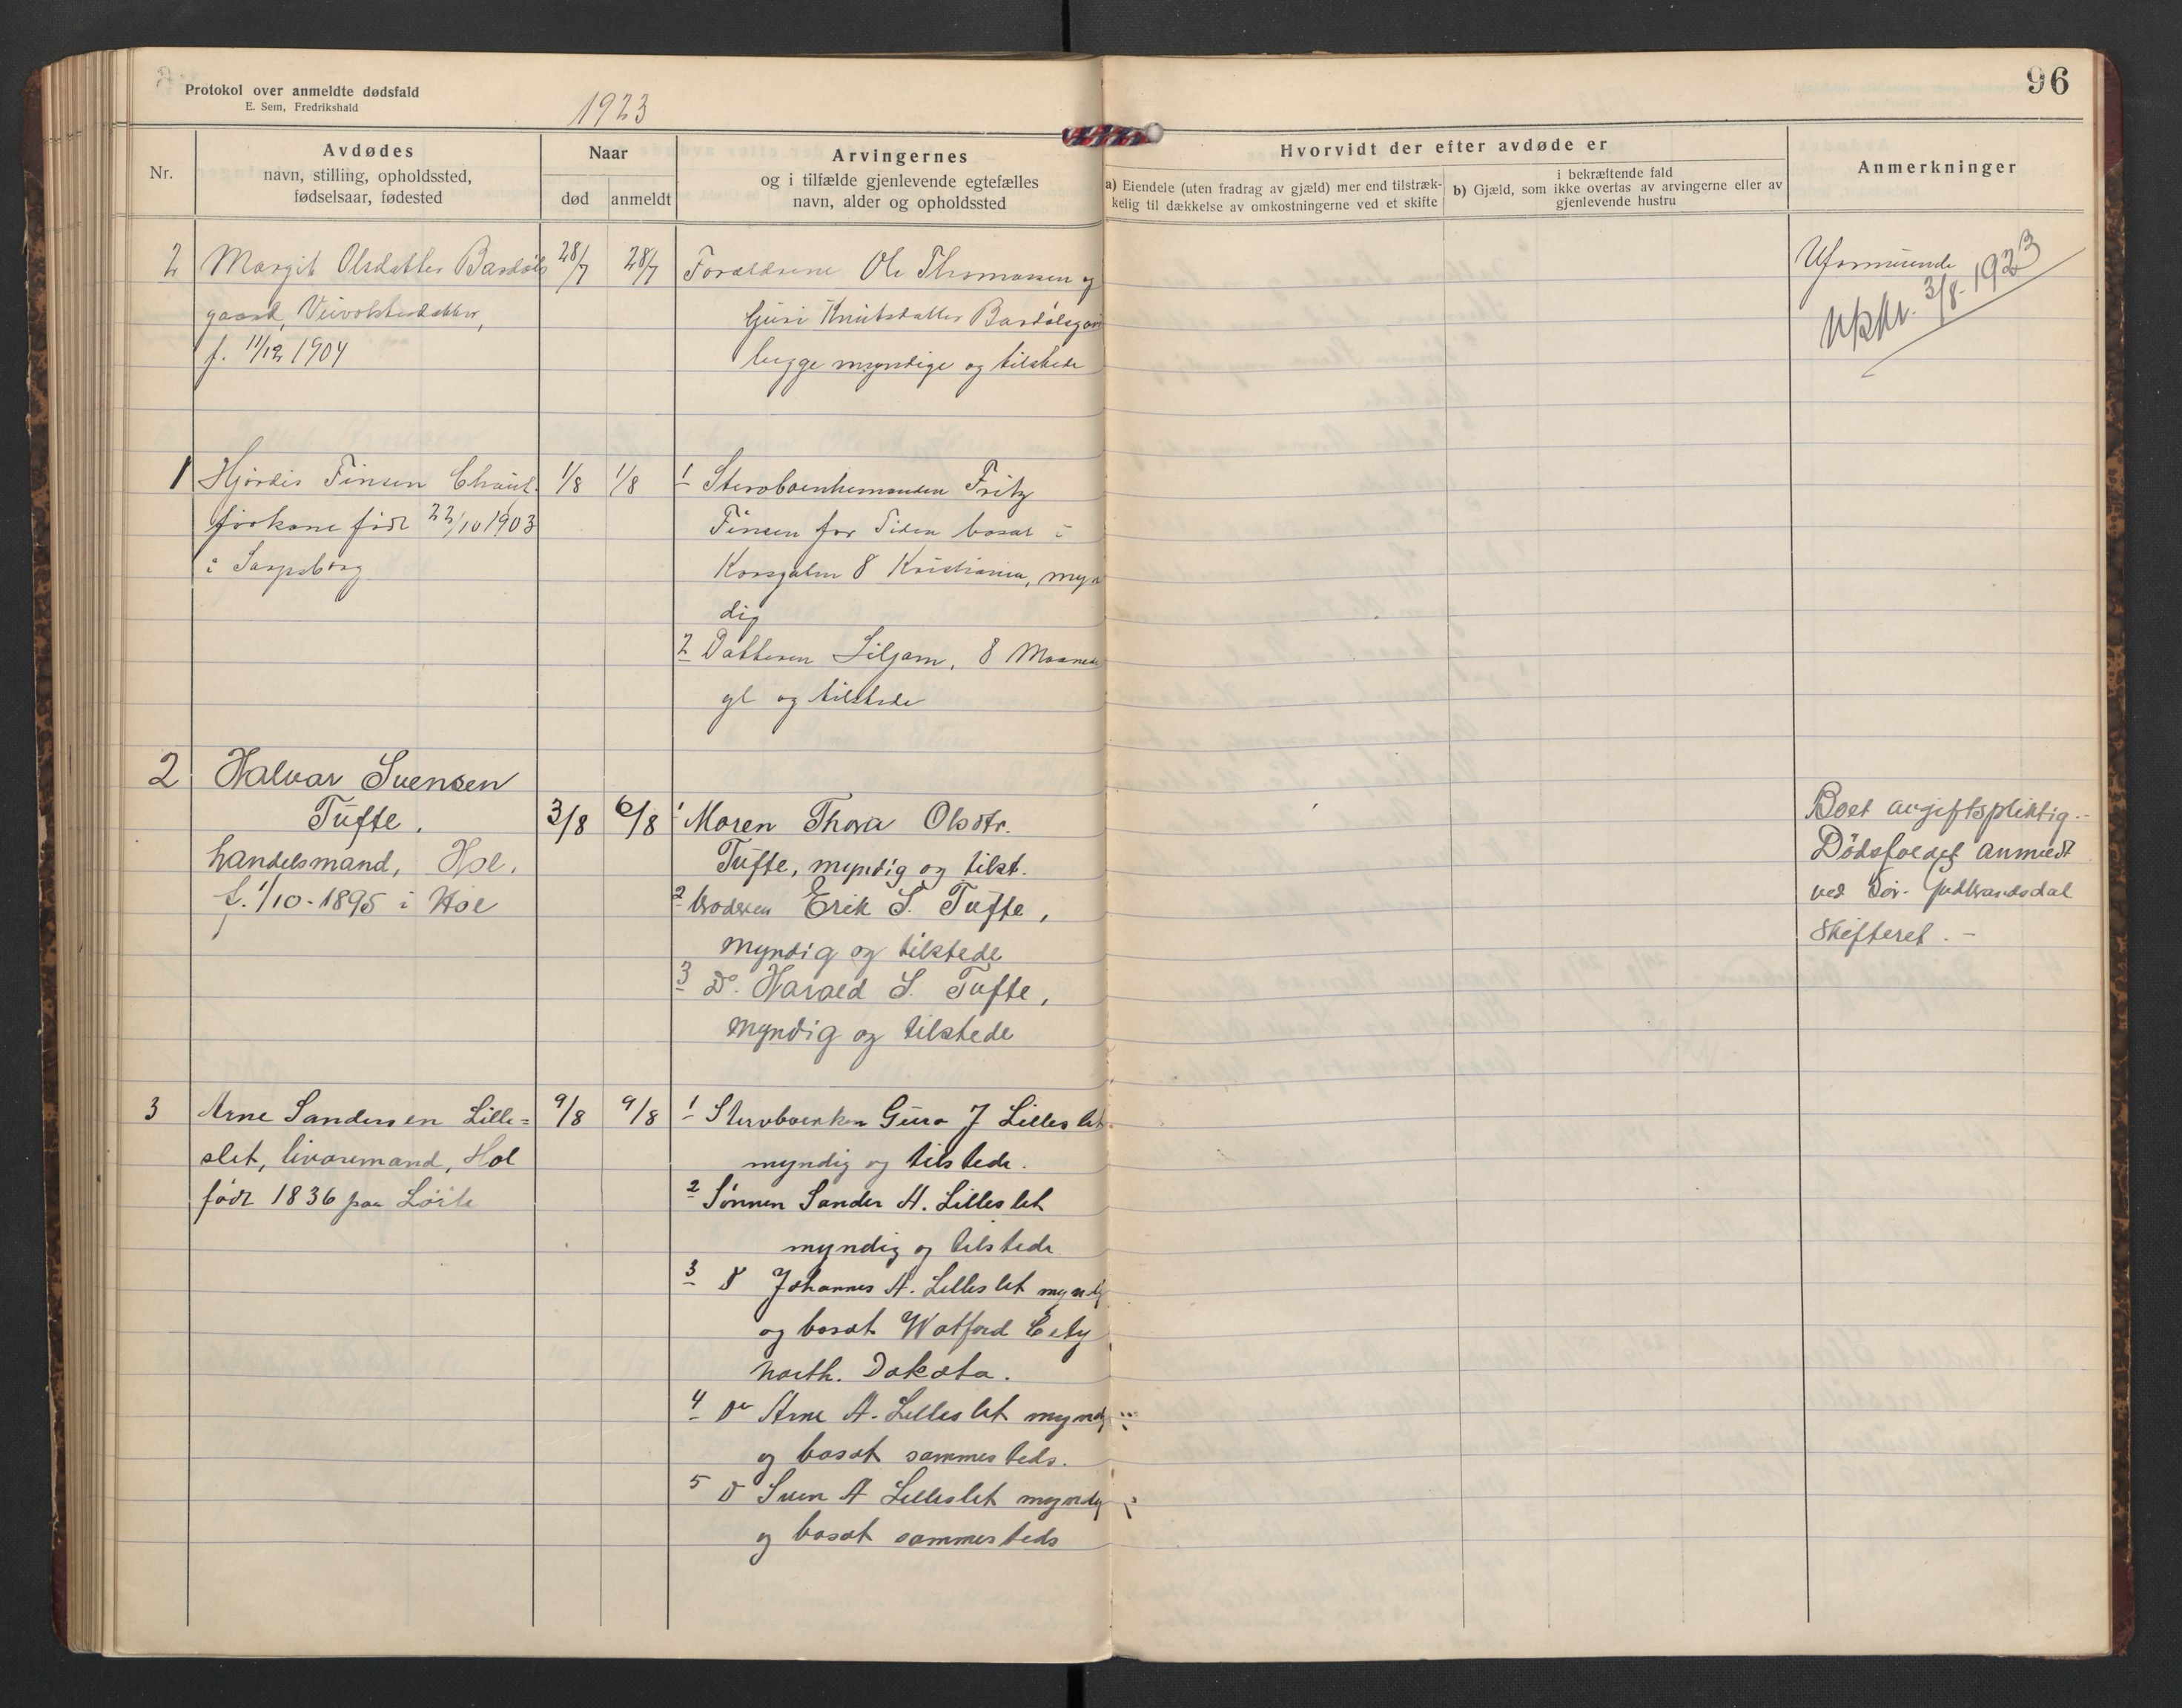 Protokol over anmeldte dødsfald
E. Sem, Fredrikshald
1923
96
Nr.
Avdødes
navn, stilling, opholdssted,
fødselsaar, fødested
Naar
død
anmeldt
Arvingernes
og i tilfælde gjenlevende egtefælles
navn, alder og opholdssted
Hvorvidt der efter avdøde er
a) Eiendele (uten fradrag av gjæld) mer end tilstræk-
kelig til dækkelse av omkostningerne ved et skifte
i bekræftende fald
b) Gjæld, som ikke overtas av arvingerne eller av
gjenlevende hustru
Anmerkninger
2 Margit Olsdatter Bardøls
gaard, Veivokterdatter,
f. 11/12 1904
28/7 28/7
Forældrene Ole Thomassen og
Guri Knutsdatter Bardølsgard
begge myndige og tilstede
Uformuende
3/8-1923
1 Hjørdis Finsen Chauf-
førkone født 22/10 1903
i Sarpsborg
1/8 1/8
1 Stervboenkemanden Fritz
Finsen for Tiden bosat i
Korsgaten 8 Kristiania, myn
dig
2 Datteren Liljam, 8 Maaneder
gl og tilstede
2 Halvar Svensen
Tufte,
handelsmand, Hol,
f. 1/10-1895 i Hol
3/8 6/8
1 Moren Thora Olsdtr.
Tufte, myndig og tilst.
2 broderen Erik S. Tufte,
myndig og tilstede
3 Do. Harald S. Tufte,
myndig og tilstede
Boet avgiftspliktig.-
Dødsfaldet anmeldt
ved Sør-Gudbrandsdal
Skifteret.-
3 Arne Sandersen Lille=
slet, livøremand, Hol
født 1836 paa
9/8 9/8
1 Stervboenken Guro J Lilleslet
myndig og tilstede.
2 Sønnen Sander A. Lilleslet
myndig og tilstede
3 D Johannes A. Lilleslet myndig
og bosat Watford City
North. Dakota.
4 Do Arne A. Lilleslet myndig
og bosat sammesteds.
5 D Sven A Lilleslet myndig
og bosat sammesteds